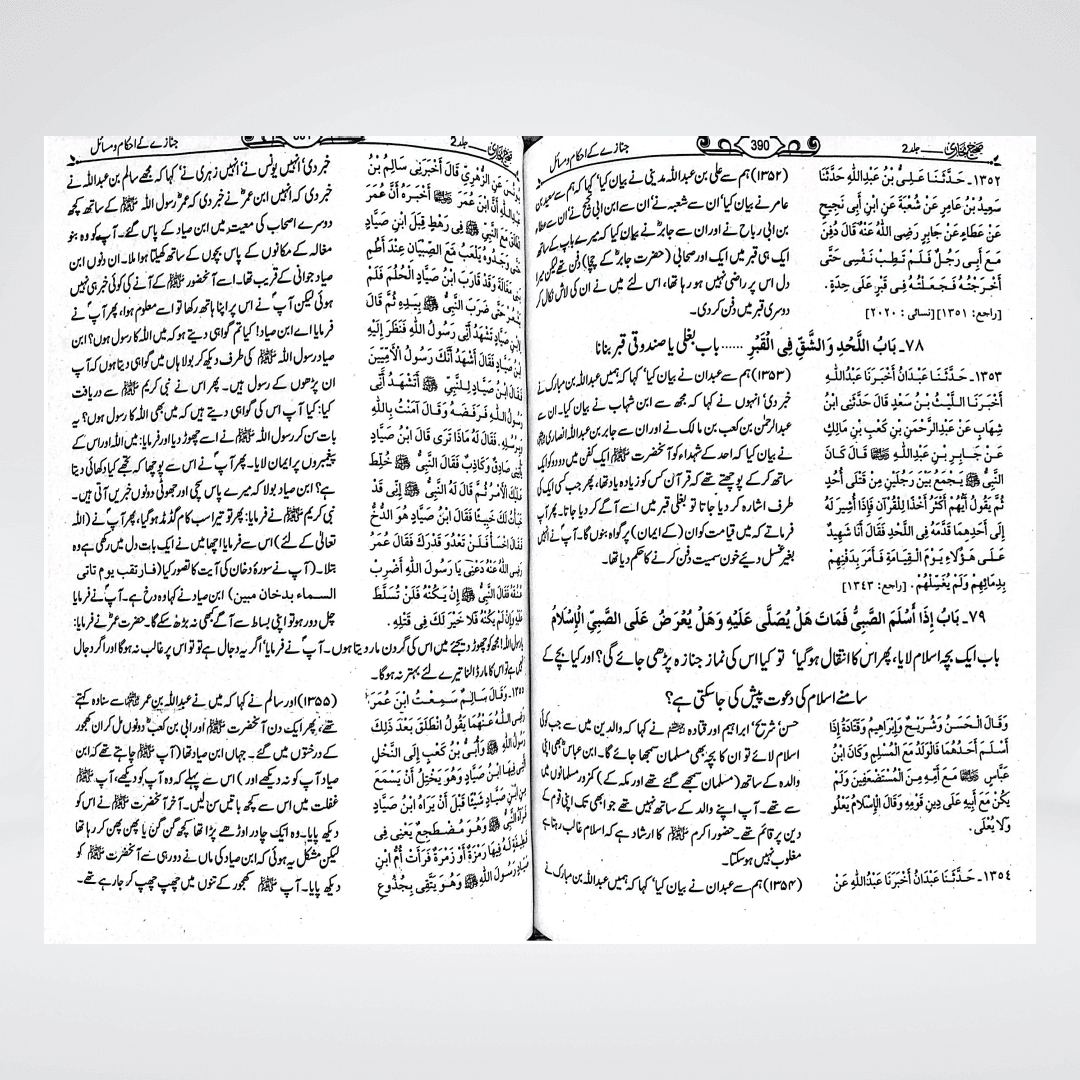 صحیح بخاری جلد 2
390
جنازے کے احکام و مسائل
١٣٥٢ـ حَدَّثَنَا عَلِيُّ بْنُ عَبْدِاللَّهِ حَدَّثَنَا
سَعِيدُ بْنُ عَامِرٍ عَنْ شُعْبَةَ عَنِ ابْنِ أَبِي نَجِيحٍ
عَنْ عَطَاءٍ عَنْ جَابِرٍ رَضِيَ اللَّهُ عَنْهُ قَالَ دُفِنَ
مَعَ أَبِي رَجُلٌ فَلَمْ تَطِبْ نَفْسِي حَتَّى
أَخْرَجْتُهُ فَجَعَلْتُهُ فِي قَبْرٍ عَلَى حِدَةٍ.
[راجع: ١٣٥١] [نسائی: ٢٠٢٠]
(۱۳۵۲) ہم سے علی بن عبداللہ مدینی نے بیان کیا' کہا کہ ہم سے سعید بن
عامر نے بیان کیا' ان سے شعبہ نے' ان سے ابن ابی نجیح نے' ان سے عطاء
بن ابی رباح نے اور ان سے جابرؓ نے بیان کیا کہ میرے باپ کے ساتھ
ایک ہی قبر میں ایک اور صحابی (حضرت جابرؓ کے چچا) دفن تھے لیکن میرا
دل اس پر راضی نہیں ہو رہا تھا' اس لئے میں نے ان کی لاش نکال کر
دوسری قبر میں دفن کر دی۔
٧٨ـ بَابُ اللَّحْدِ وَالشَّقِّ فِي الْقَبْرِ ...... باب بغلی یا صندوقی قبر بنانا
١٣٥٣ـ حَدَّثَنَا عَبْدَانُ أَخْبَرَنَا عَبْدُاللَّهِ
أَخْبَرَنَا اللَّيْثُ بْنُ سَعْدٍ قَالَ حَدَّثَنِي ابْنُ
شِهَابٍ عَنْ عَبْدِالرَّحْمَنِ بْنِ كَعْبِ بْنِ مَالِكٍ
عَنْ جَابِرِ بْنِ عَبْدِاللَّهِ ؓ قَالَ كَانَ
النَّبِيُّ ﷺ يَجْمَعُ بَيْنَ رَجُلَيْنِ مِنْ قَتْلَى أُحُدٍ
ثُمَّ يَقُولُ أَيُّهُمْ أَكْثَرُ أَخْذًا لِلْقُرْآنِ فَإِذَا أُشِيرَ لَهُ
إِلَى أَحَدِهِمَا قَدَّمَهُ فِي اللَّحْدِ فَقَالَ أَنَا شَهِيدٌ
عَلَى هَؤُلَاءِ يَوْمَ الْقِيَامَةِ فَأَمَرَ بِدَفْنِهِمْ
بِدِمَائِهِمْ وَلَمْ يُغَسِّلْهُمْ. [راجع: ١٣٤٣]
(۱۳۵۳) ہم سے عبدان نے بیان کیا' کہا کہ ہمیں عبداللہ بن مبارک نے
خبر دی' انہوں نے کہا کہ مجھ سے ابن شہاب نے بیان کیا۔ ان سے
عبدالرحمٰن بن کعب بن مالک نے اور ان سے جابر بن عبداللہ انصاری
نے بیان کیا کہ احد کے شہداء کو آنحضرت ﷺ ایک کفن میں دو دو کو ایک
ساتھ کر کے پوچھتے تھے کہ قرآن کس کو زیادہ یاد تھا' پھر جب کسی ایک کی
طرف اشارہ کر دیا جاتا تو بغلی قبر میں اسے آگے کر دیا جاتا۔ پھر آپ
فرماتے کہ میں قیامت کو ان (کے ایمان) پر گواہ بنوں گا۔ آپ نے انہیں
بغیر غسل دیئے خون سمیت دفن کرنے کا حکم دیا تھا۔
٧٩ـ بَابُ إِذَا أَسْلَمَ الصَّبِيُّ فَمَاتَ هَلْ يُصَلَّى عَلَيْهِ وَهَلْ يُعْرَضُ عَلَى الصَّبِيِّ الْإِسْلَامُ
باب ایک بچہ اسلام لایا، پھر اس کا انتقال ہو گیا' تو کیا اس کی نماز جنازہ پڑھی جائے گی؟ اور کیا بچے کے
سامنے اسلام کی دعوت پیش کی جاسکتی ہے؟
وَقَالَ الْحَسَنُ وَشُرَيْحٌ وَإِبْرَاهِيمُ وَقَتَادَةُ إِذَا
أَسْلَمَ أَحَدُهُمَا فَالْوَلَدُ مَعَ الْمُسْلِمِ وَكَانَ ابْنُ
عَبَّاسٍ ؓ مَعَ أُمِّهِ مِنَ الْمُسْتَضْعَفِينَ وَلَمْ
يَكُنْ مَعَ أَبِيهِ عَلَى دِينِ قَوْمِهِ وَقَالَ الْإِسْلَامُ يَعْلُو
وَلَا يُعْلَى.
حسن' شریح' ابراہیم اور قتادہ نے کہا کہ والدین میں سے جب کوئی
اسلام لائے تو ان کا بچہ بھی مسلمان سمجھا جائے گا۔ ابن عباسؓ بھی اپنی
والدہ کے ساتھ (مسلمان سمجھے گئے تھے اور مکہ کے) کمزور مسلمانوں میں
سے تھے۔ آپ اپنے والد کے ساتھ نہیں تھے جو ابھی تک اپنی قوم کے
دین پر قائم تھے۔ حضور اکرم ﷺ کا ارشاد ہے کہ اسلام غالب رہتا ہے
مغلوب نہیں ہو سکتا۔
١٣٥٤ـ حَدَّثَنَا عَبْدَانُ أَخْبَرَنَا عَبْدُاللَّهِ عَنْ
(۱۳۵۴) ہم سے عبدان نے بیان کیا' کہا کہ ہمیں عبداللہ بن مبارک نے
صحیح بخاری جلد 2
جنازے کے احکام و مسائل
يُونُسَ عَنِ الزُّهْرِيِّ قَالَ أَخْبَرَنِي سَالِمُ بْنُ
عَبْدِاللَّهِ أَنَّ ابْنَ عُمَرَ ؓ أَخْبَرَهُ أَنَّ عُمَرَ
انْطَلَقَ مَعَ النَّبِيِّ ﷺ فِي رَهْطٍ قِبَلَ ابْنِ صَيَّادٍ
حَتَّى وَجَدُوهُ يَلْعَبُ مَعَ الصِّبْيَانِ عِنْدَ أُطُمِ
بَنِي مَغَالَةَ وَقَدْ قَارَبَ ابْنُ صَيَّادٍ الْحُلُمَ فَلَمْ
يَشْعُرْ حَتَّى ضَرَبَ النَّبِيُّ ﷺ بِيَدِهِ ثُمَّ قَالَ
لِابْنِ صَيَّادٍ تَشْهَدُ أَنِّي رَسُولُ اللَّهِ فَنَظَرَ إِلَيْهِ
ابْنُ صَيَّادٍ فَقَالَ أَشْهَدُ أَنَّكَ رَسُولُ الْأُمِّيِّينَ
فَقَالَ ابْنُ صَيَّادٍ لِلنَّبِيِّ ﷺ أَتَشْهَدُ أَنِّي
رَسُولُ اللَّهِ فَرَفَضَهُ وَقَالَ آمَنْتُ بِاللَّهِ
وَبِرُسُلِهِ، فَقَالَ لَهُ مَاذَا تَرَى قَالَ ابْنُ صَيَّادٍ
يَأْتِينِي صَادِقٌ وَكَاذِبٌ فَقَالَ النَّبِيُّ ﷺ خُلِّطَ
عَلَيْكَ الْأَمْرُ ثُمَّ قَالَ لَهُ النَّبِيُّ ﷺ إِنِّي قَدْ
خَبَأْتُ لَكَ خَبِيئًا فَقَالَ ابْنُ صَيَّادٍ هُوَ الدُّخُّ
فَقَالَ اخْسَأْ فَلَنْ تَعْدُوَ قَدْرَكَ فَقَالَ عُمَرُ
رَضِيَ اللَّهُ عَنْهُ دَعْنِي يَا رَسُولَ اللَّهِ أَضْرِبْ
عُنُقَهُ فَقَالَ النَّبِيُّ ﷺ إِنْ يَكُنْهُ فَلَنْ تُسَلَّطَ
عَلَيْهِ وَإِنْ لَمْ يَكُنْهُ فَلَا خَيْرَ لَكَ فِي قَتْلِهِ.
خبر دی' انہیں یونس نے' انہیں زہری نے' کہا کہ مجھے سالم بن عبداللہ نے
خبر دی کہ انہیں ابن عمرؓ نے خبر دی کہ عمرؓ رسول اللہ ﷺ کے ساتھ کچھ
دوسرے اصحاب کی معیت میں ابن صیاد کے پاس گئے۔ آپ کو وہ بنو
مغالہ کے مکانوں کے پاس بچوں کے ساتھ کھیلتا ہوا ملا۔ ان دنوں ابن
صیاد جوانی کے قریب تھا۔ اسے آنحضور ﷺ کے آنے کی کوئی خبر ہی نہیں
ہوئی لیکن آپؐ نے اس پر اپنا ہاتھ رکھا تو اسے معلوم ہوا، پھر آپؐ نے
فرمایا اے ابن صیاد! کیا تم گواہی دیتے ہو کہ میں اللہ کا رسول ہوں؟ ابن
صیاد رسول اللہ ﷺ کی طرف دیکھ کر بولا ہاں میں گواہی دیتا ہوں کہ آپ
ان پڑھوں کے رسول ہیں۔ پھر اس نے نبی کریم ﷺ سے دریافت
کیا: کیا آپ اس کی گواہی دیتے ہیں کہ میں بھی اللہ کا رسول ہوں؟ یہ
بات سن کر رسول اللہ ﷺ نے اسے چھوڑ دیا اور فرمایا: میں اللہ اور اس کے
پیغمبروں پر ایمان لایا۔ پھر آپؐ نے اس سے پوچھا کہ تجھے کیا دکھائی دیتا
ہے؟ ابن صیاد بولا کہ میرے پاس سچی اور جھوٹی دونوں خبریں آتی ہیں۔
نبی کریم ﷺ نے فرمایا: پھر تو تیرا سب کام گڈمڈ ہو گیا، پھر آپؐ نے (اللہ
تعالیٰ کے لئے) اس سے فرمایا اچھا میں نے ایک بات دل میں رکھی ہے وہ
بتلا۔ (آپ نے سورۂ دخان کی آیت کا تصور کیا (فارتقب یوم تاتی
السماء بدخان مبین) ابن صیاد نے کہا وہ دخ ہے۔ آپؐ نے فرمایا
چل دور ہو تو اپنی بساط سے آگے بھی نہ بڑھ سکے گا۔ حضرت عمرؓ نے فرمایا:
یا رسول اللہ! مجھ کو چھوڑ دیجئے میں اس کی گردن مار دیتا ہوں۔ آپؐ نے فرمایا' اگر یہ دجال ہے تو تو اس پر غالب نہ ہو گا اور اگر دجال
نہیں ہے تو اس کا مار ڈالنا تیرے لئے بہتر نہ ہو گا۔
١٣٥٥ـ وَقَالَ سَالِمٌ سَمِعْتُ ابْنَ عُمَرَ
رَضِيَ اللَّهُ عَنْهُمَا يَقُولُ انْطَلَقَ بَعْدَ ذَلِكَ
رَسُولُ اللَّهِ ﷺ وَأُبَيُّ بْنُ كَعْبٍ إِلَى النَّخْلِ
الَّتِي فِيهَا ابْنُ صَيَّادٍ وَهُوَ يَخْتِلُ أَنْ يَسْمَعَ
مِنِ ابْنِ صَيَّادٍ شَيْئًا قَبْلَ أَنْ يَرَاهُ ابْنُ صَيَّادٍ
فَرَآهُ النَّبِيُّ ﷺ وَهُوَ مُضْطَجِعٌ يَعْنِي فِي
قَطِيفَةٍ لَهُ فِيهَا رَمْزَةٌ أَوْ زَمْرَةٌ فَرَأَتْ أُمُّ ابْنِ
صَيَّادٍ رَسُولَ اللَّهِ ﷺ وَهُوَ يَتَّقِي بِجُذُوعِ
(۱۳۵۵) اور سالم نے کہا کہ میں نے عبداللہ بن عمرؓ سے سنا وہ کہتے
تھے، پھر ایک دن آنحضرت ﷺ اور ابی بن کعبؓ دونوں مل کر ان کھجور
کے درختوں میں گئے۔ جہاں ابن صیاد تھا (آپ ﷺ چاہتے تھے کہ ابن
صیاد آپ کو نہ دیکھے اور) اس سے پہلے کہ وہ آپ کو دیکھے، آپ ﷺ
غفلت میں اس سے کچھ باتیں سن لیں۔ آخر آنحضرت ﷺ نے اس کو
دیکھ پایا۔ وہ ایک چادر اوڑھے پڑا تھا کچھ گن گن یا پھن پھن کر رہا تھا
لیکن مشکل یہ ہوئی کہ ابن صیاد کی ماں نے دور ہی سے آنحضرت ﷺ کو
دیکھ پایا۔ آپ ﷺ کھجور کے تنوں میں چھپ چھپ کر جا رہے تھے۔